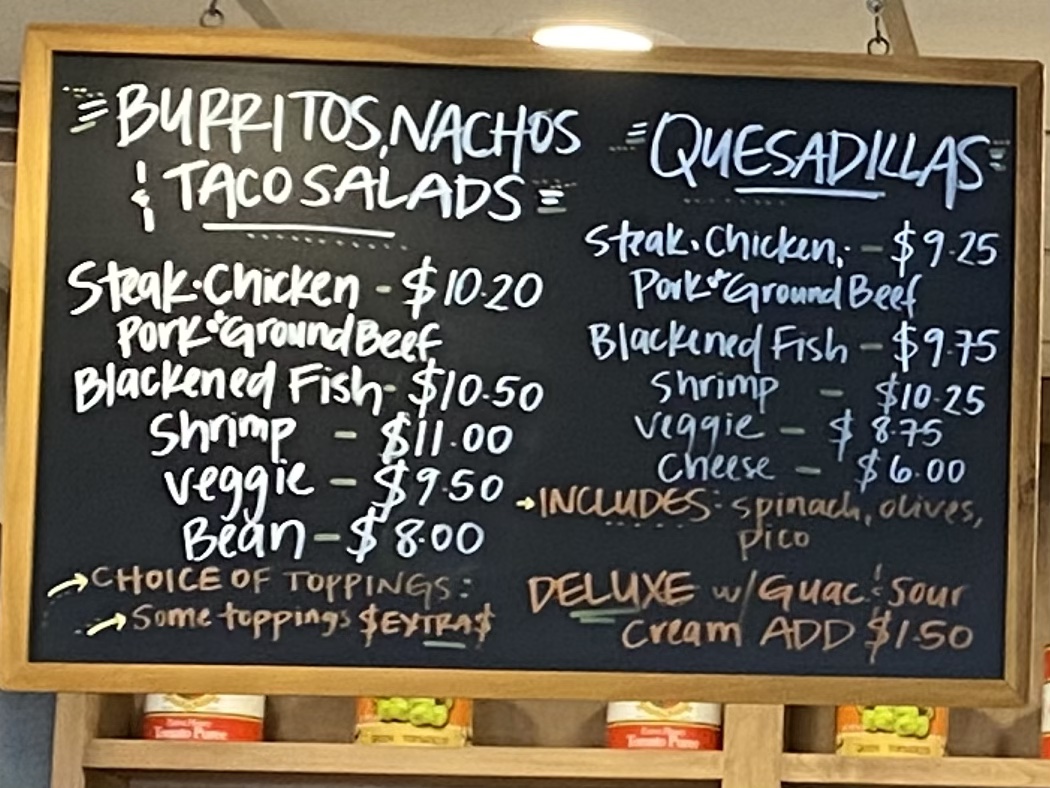 BURRITOS, NACHOS
& TACO SALADS
Steak · Chicken - $10.20
Pork & Ground Beef
Blackened Fish - $10.50
Shrimp - $11.00
veggie - $9.50
Bean - $8.00
→ CHOICE OF TOPPINGS:
→ Some toppings $EXTRA$
QUESADILLAS
Steak · Chicken, - $9.25
Pork & Ground Beef
Blackened Fish - $9.75
Shrimp - $10.25
veggie - $8.75
Cheese - $6.00
→ INCLUDES: spinach, olives,
pico
DELUXE w/ Guac & Sour
Cream ADD $1.50
Tomato Puree
Tomato Puree